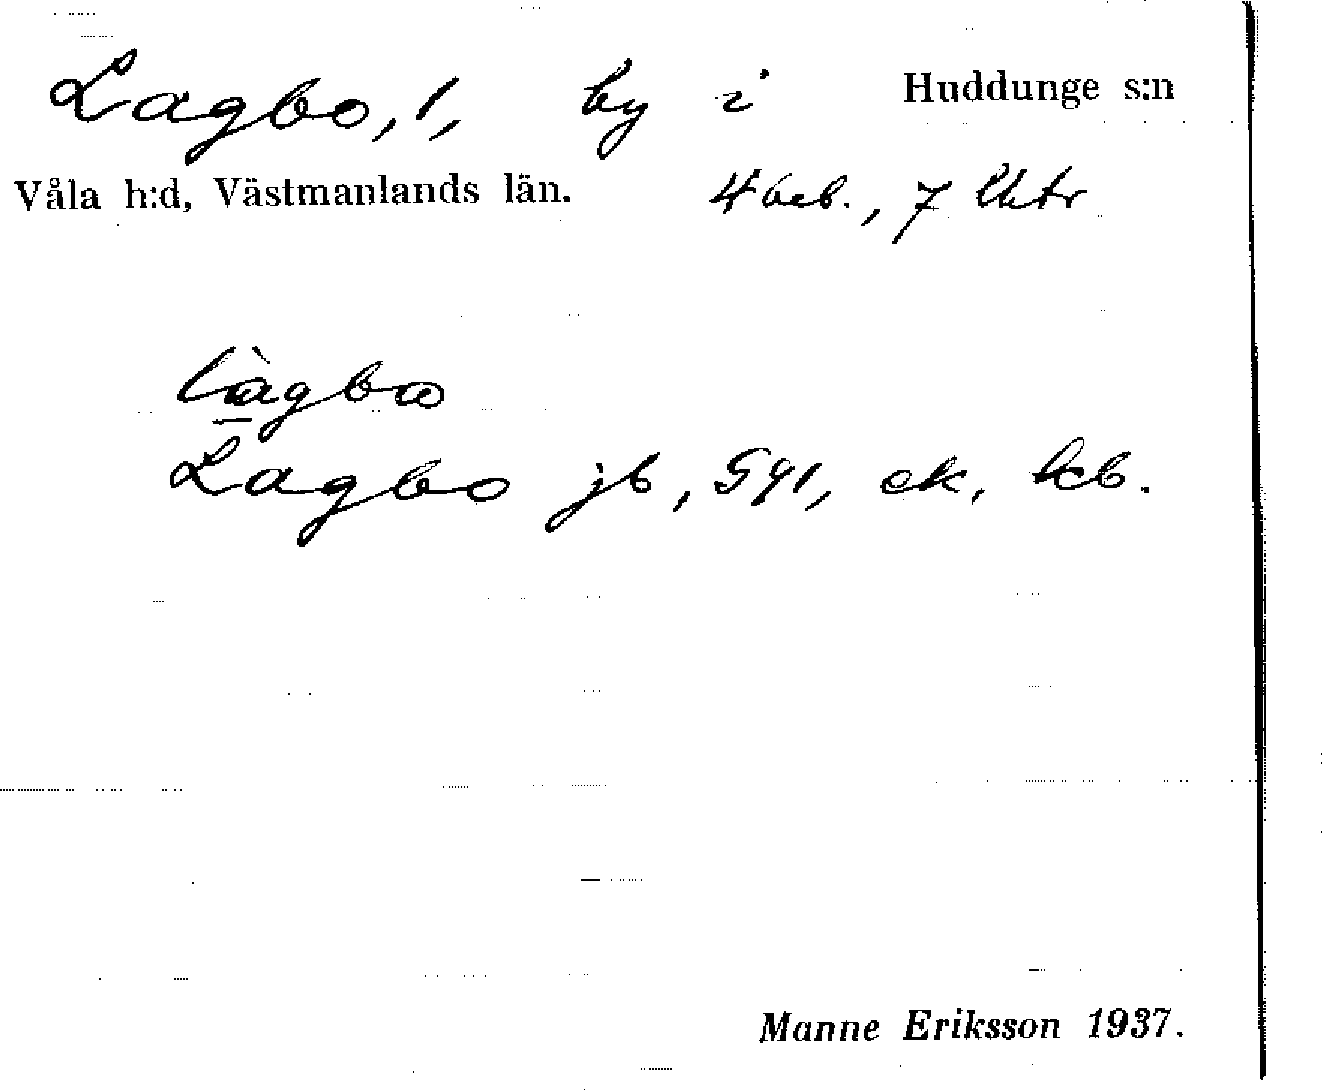 Lagbo, 1, by i Huddunge s:n
Våla h:d, Västmanlands län. 4 beb., 7 lhtr
làgbω
Lagbo jb, GQ1, ek, kb.
Manne Eriksson 1937.